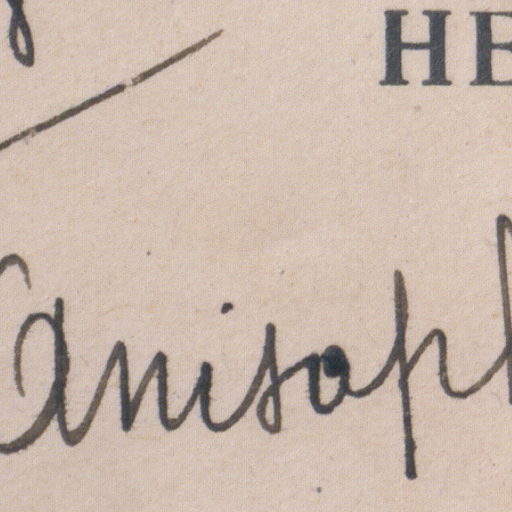 HE
Anisoph